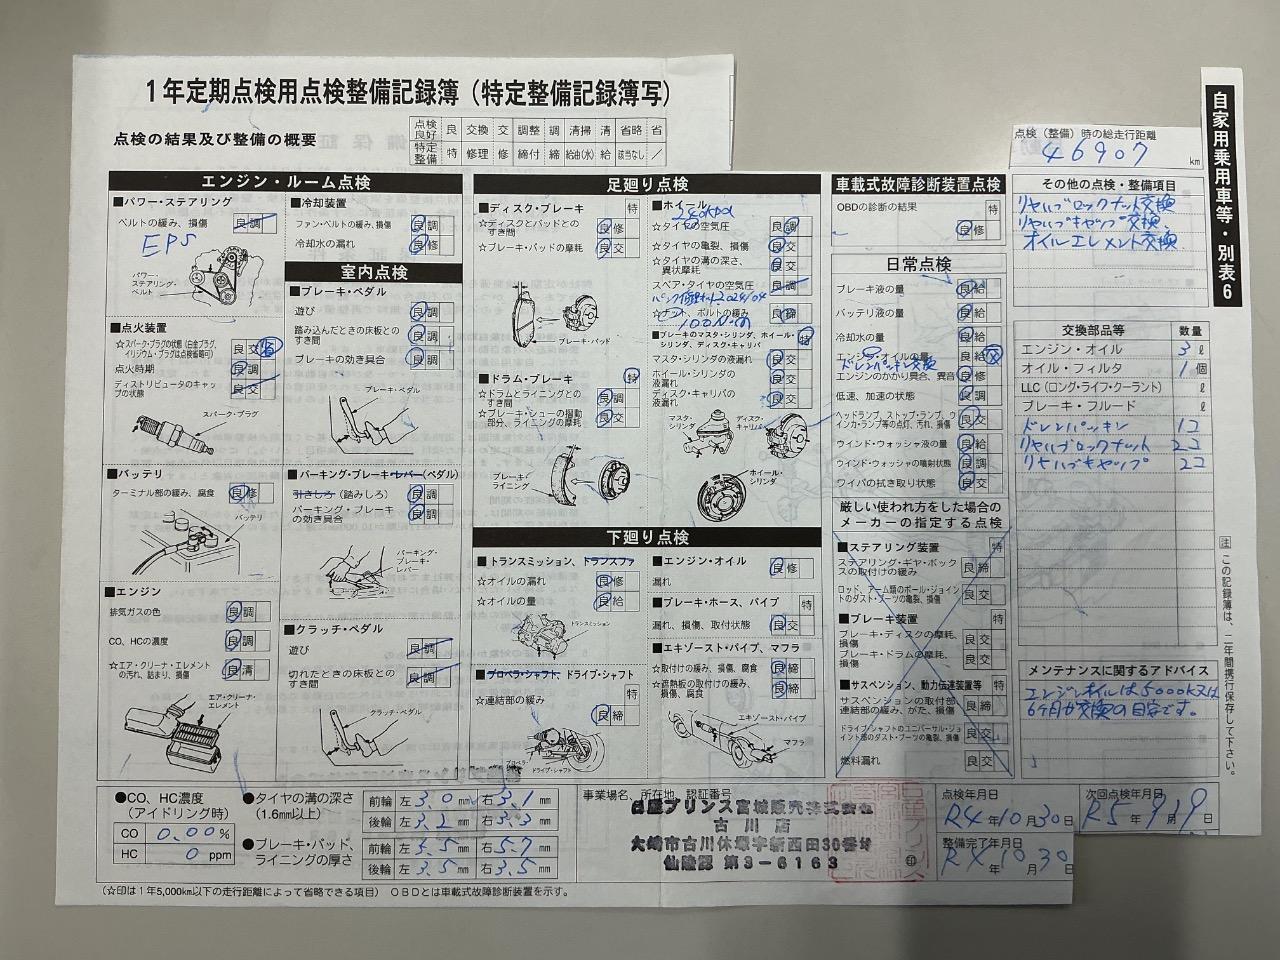 1年定期点検用点検整備記録簿（特定整備記録簿写）
点検の結果及び整備の概要
点検良好 良 交換 交 調整 調 清掃 清 省略 省
特定整備 特 修理 修 締付 締 給油(水) 給 該当なし ／
自家用乗用車等・別表6
点検（整備）時の総走行距離
46907 km
エンジン・ルーム点検
■パワー・ステアリング
ベルトの緩み、損傷 良 調
EPS
パワー・ステアリング・ベルト
■点火装置
☆スパーク・プラグの状態（白金プラグ、イリジウム・プラグは点検省略可） 良 交 省
点火時期 良 調
ディストリビュータのキャップの状態 良 交
スパーク・プラグ
■バッテリ
ターミナル部の緩み、腐食 良 修
バッテリ
■エンジン
排気ガスの色 良 調
CO、HCの濃度 良 調
☆エア・クリーナ・エレメントの汚れ、詰まり、損傷 良 清
エア・クリーナ・エレメント
■冷却装置
ファン・ベルトの緩み、損傷 良 調
冷却水の漏れ 良 修
室内点検
■ブレーキ・ペダル
遊び 良 調
踏み込んだときの床板とのすき間 良 調
ブレーキの効き具合 良 調
ブレーキ・ペダル
■パーキング・ブレーキ・レバー（ペダル）
引きしろ（踏みしろ） 良 調
パーキング・ブレーキの効き具合 良 調
パーキング・ブレーキ・レバー
■クラッチ・ペダル
遊び 良 調
切れたときの床板とのすき間 良 調
クラッチ・ペダル
足廻り点検
■ディスク・ブレーキ 特
☆ディスクとパッドとのすき間 良 修
☆ブレーキ・パッドの摩耗 良 交
ブレーキ・パッド
■ドラム・ブレーキ 特
☆ドラムとライニングとのすき間 良 調
☆ブレーキ・シューの摺動部分、ライニングの摩耗 良 交
ブレーキ・ライニング
■ホイール
240kpa
☆タイヤの空気圧 良 調
☆タイヤの亀裂、損傷 良 交
☆タイヤの溝の深さ、異状摩耗 良 交
スペア・タイヤの空気圧 良 調
パンク修理キット2024/04
☆ナット、ボルトの緩み 良 締
100N・m
■ブレーキのマスタ・シリンダ、ホイール・シリンダ、ディスク・キャリパ 特
マスタ・シリンダの液漏れ 良 交
ホイール・シリンダの液漏れ 良 交
ディスク・キャリパの液漏れ 良 交
マスタ・シリンダ
ディスク・キャリパ
ホイール・シリンダ
下廻り点検
■トランスミッション、トランスファ
☆オイルの漏れ 良 修
☆オイルの量 良 給
トランスミッション
■プロペラ・シャフト、ドライブ・シャフト 特
☆連結部の緩み 良 締
プロペラ・シャフト
ドライブ・シャフト
■エンジン・オイル
漏れ 良 修
■ブレーキ・ホース、パイプ 特
漏れ、損傷、取付状態 良 交
■エキゾースト・パイプ、マフラ
☆取付けの緩み、損傷、腐食 良 締
☆遮熱板の取付けの緩み、損傷、腐食 良 締
エキゾースト・パイプ
マフラ
車載式故障診断装置点検
OBDの診断の結果 特 良 修
日常点検
ブレーキ液の量 良 給
バッテリ液の量 良 給
冷却水の量 良 給
エンジン・オイルの量 良 給 交
ドレンパッキン交換
エンジンのかかり具合、異音 良 修
低速、加速の状態 良 調
ヘッドランプ、ストップ・ランプ、ウインカ・ランプ等の点灯、汚れ、損傷 良 交
ウインド・ウォッシャ液の量 良 給
ウインド・ウォッシャの噴射状態 良 調
ワイパの拭き取り状態 良 交
厳しい使われ方をした場合のメーカーの指定する点検
■ステアリング装置 特
ステアリング・ギヤ・ボックスの取付けの緩み 良 締
ロッド、アーム類のボール・ジョイントのダスト・ブーツの亀裂、損傷 良 交
■ブレーキ装置
ブレーキ・ディスクの摩耗、損傷 良 交
ブレーキ・ドラムの摩耗、損傷 良 交
■サスペンション、動力伝達装置等 特
サスペンションの取付部、連結部の緩み、がた、損傷 良 締
ドライブ・シャフトのユニバーサル・ジョイント部のダスト・ブーツの亀裂、損傷 良 交
燃料漏れ 良 交
その他の点検・整備項目
リヤハブロックナット交換
リヤハブキャップ交換、
オイルエレメント交換
交換部品等 数量
エンジン・オイル 3 ℓ
オイル・フィルタ 1 個
LLC（ロング・ライフ・クーラント） ℓ
ブレーキ・フルード ℓ
ドレンパッキン 1コ
リヤハブロックナット 2コ
リヤハブキャップ 2コ
メンテナンスに関するアドバイス
エンジンオイルは5000K又は
6ケ月が交換の目安です。
注 この記録簿は、二年間携行保存して下さい。
●CO、HC濃度（アイドリング時）
CO 0.00 %
HC 0 ppm
●タイヤの溝の深さ（1.6mm以上）
前輪 左 3.0 mm 右 3.1 mm
後輪 左 3.2 mm 右 3.3 mm
●ブレーキ・パッド、ライニングの厚さ
前輪 左 5.5 mm 右 5.7 mm
後輪 左 3.5 mm 右 3.5 mm
（☆印は1年5,000km以下の走行距離によって省略できる項目） OBDとは車載式故障診断装置を示す。
事業場名、所在地、認証番号
日産プリンス宮城販売株式会社
古川店
大崎市古川休塚字新西田30番地
仙陸認 第3-6163
印
点検年月日
R4年10月30日
次回点検年月日
R5 9 19日
整備完了年月日
R4年10月30日